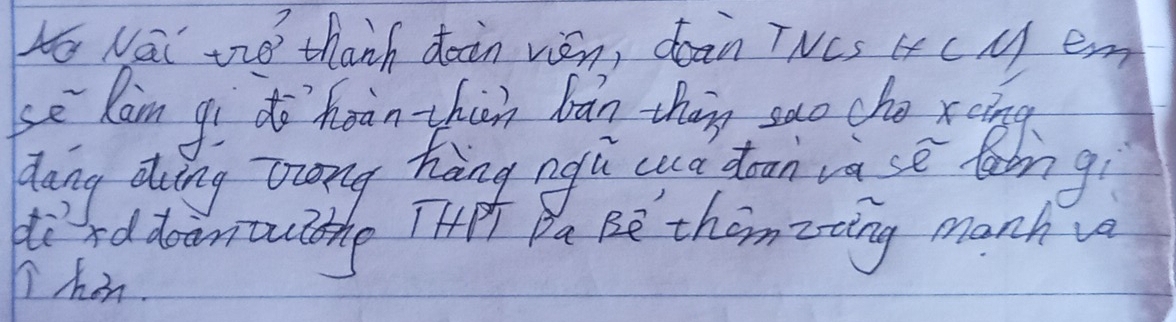 Nãí trở thành đoàn viên, đoàn TNCS HCM em
sẽ làm gì để hoàn thiện bản thân sao cho xứng
đáng đứng trong hàng ngũ của đoàn và sẽ làm gì
để xd đoàn trường THPT Ba Bể thêm vững mạnh và
↑ hơn.